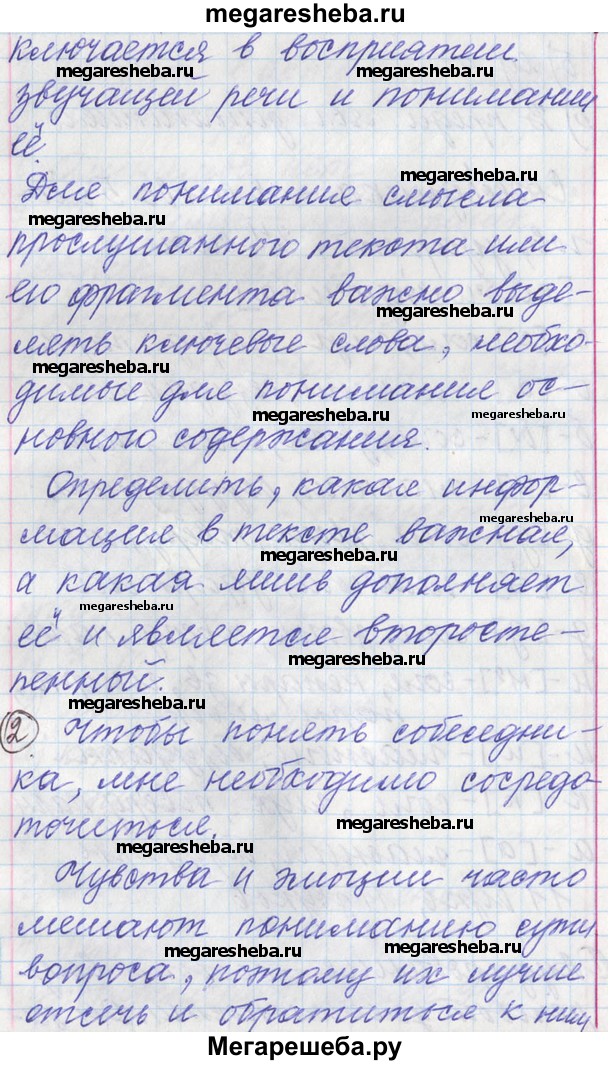 megaresheba.ru
ключается в восприятии
megaresheba.ru megaresheba.ru
звучащей речи и понимании
её.
megaresheba.ru
Для понимания смысла
megaresheba.ru
прослушанного текста или
его фрагмента важно выде-
megaresheba.ru
лять ключевые слова, необхо-
megaresheba.ru
димые для понимания ос-
megaresheba.ru megaresheba.ru
новного содержания.
Определить, какая инфор-
megaresheba.ru
мация в тексте важная,
megaresheba.ru
а какая лишь дополняет
megaresheba.ru
её и является второсте-
megaresheba.ru
пенной.
megaresheba.ru
2 Чтобы понять собеседни-
ка, мне необходимо сосредо
точиться.
megaresheba.ru
megaresheba.ru
Чувства и эмоции часто
мешают пониманию сути
megaresheba.ru megaresheba.ru
вопроса, поэтому их лучше
отсечь и обратиться к ним
Мегарешеба.ру